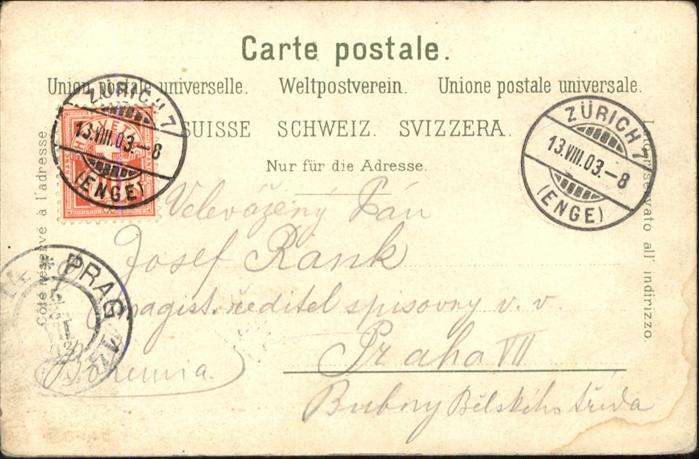 Carte postale.
Union postale universelle. Weltpostverein. Unione postale universale.
SUISSE SCHWEIZ. SVIZZERA.
Nur für die Adresse.
Côté réservé à l'adresse.
Lato riservato all' indirizzo
ZÜRICH 7
13.VIII.03.-8
(ENGE)
ZÜRICH 7
13.VIII.03.-8
(ENGE)
PRAG
Velevážený Pán
Josef Rank
magist. ředitel spisovny v. v.
Praha VII
Bohemia.
Bubny Bělského třída